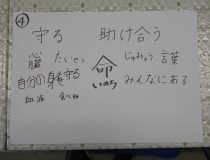 ④
守る 助け合う
心臓 たいせつ 命 じゅみょう 言葉
自分の身を守る いのち みんなにある
血液 食べ物